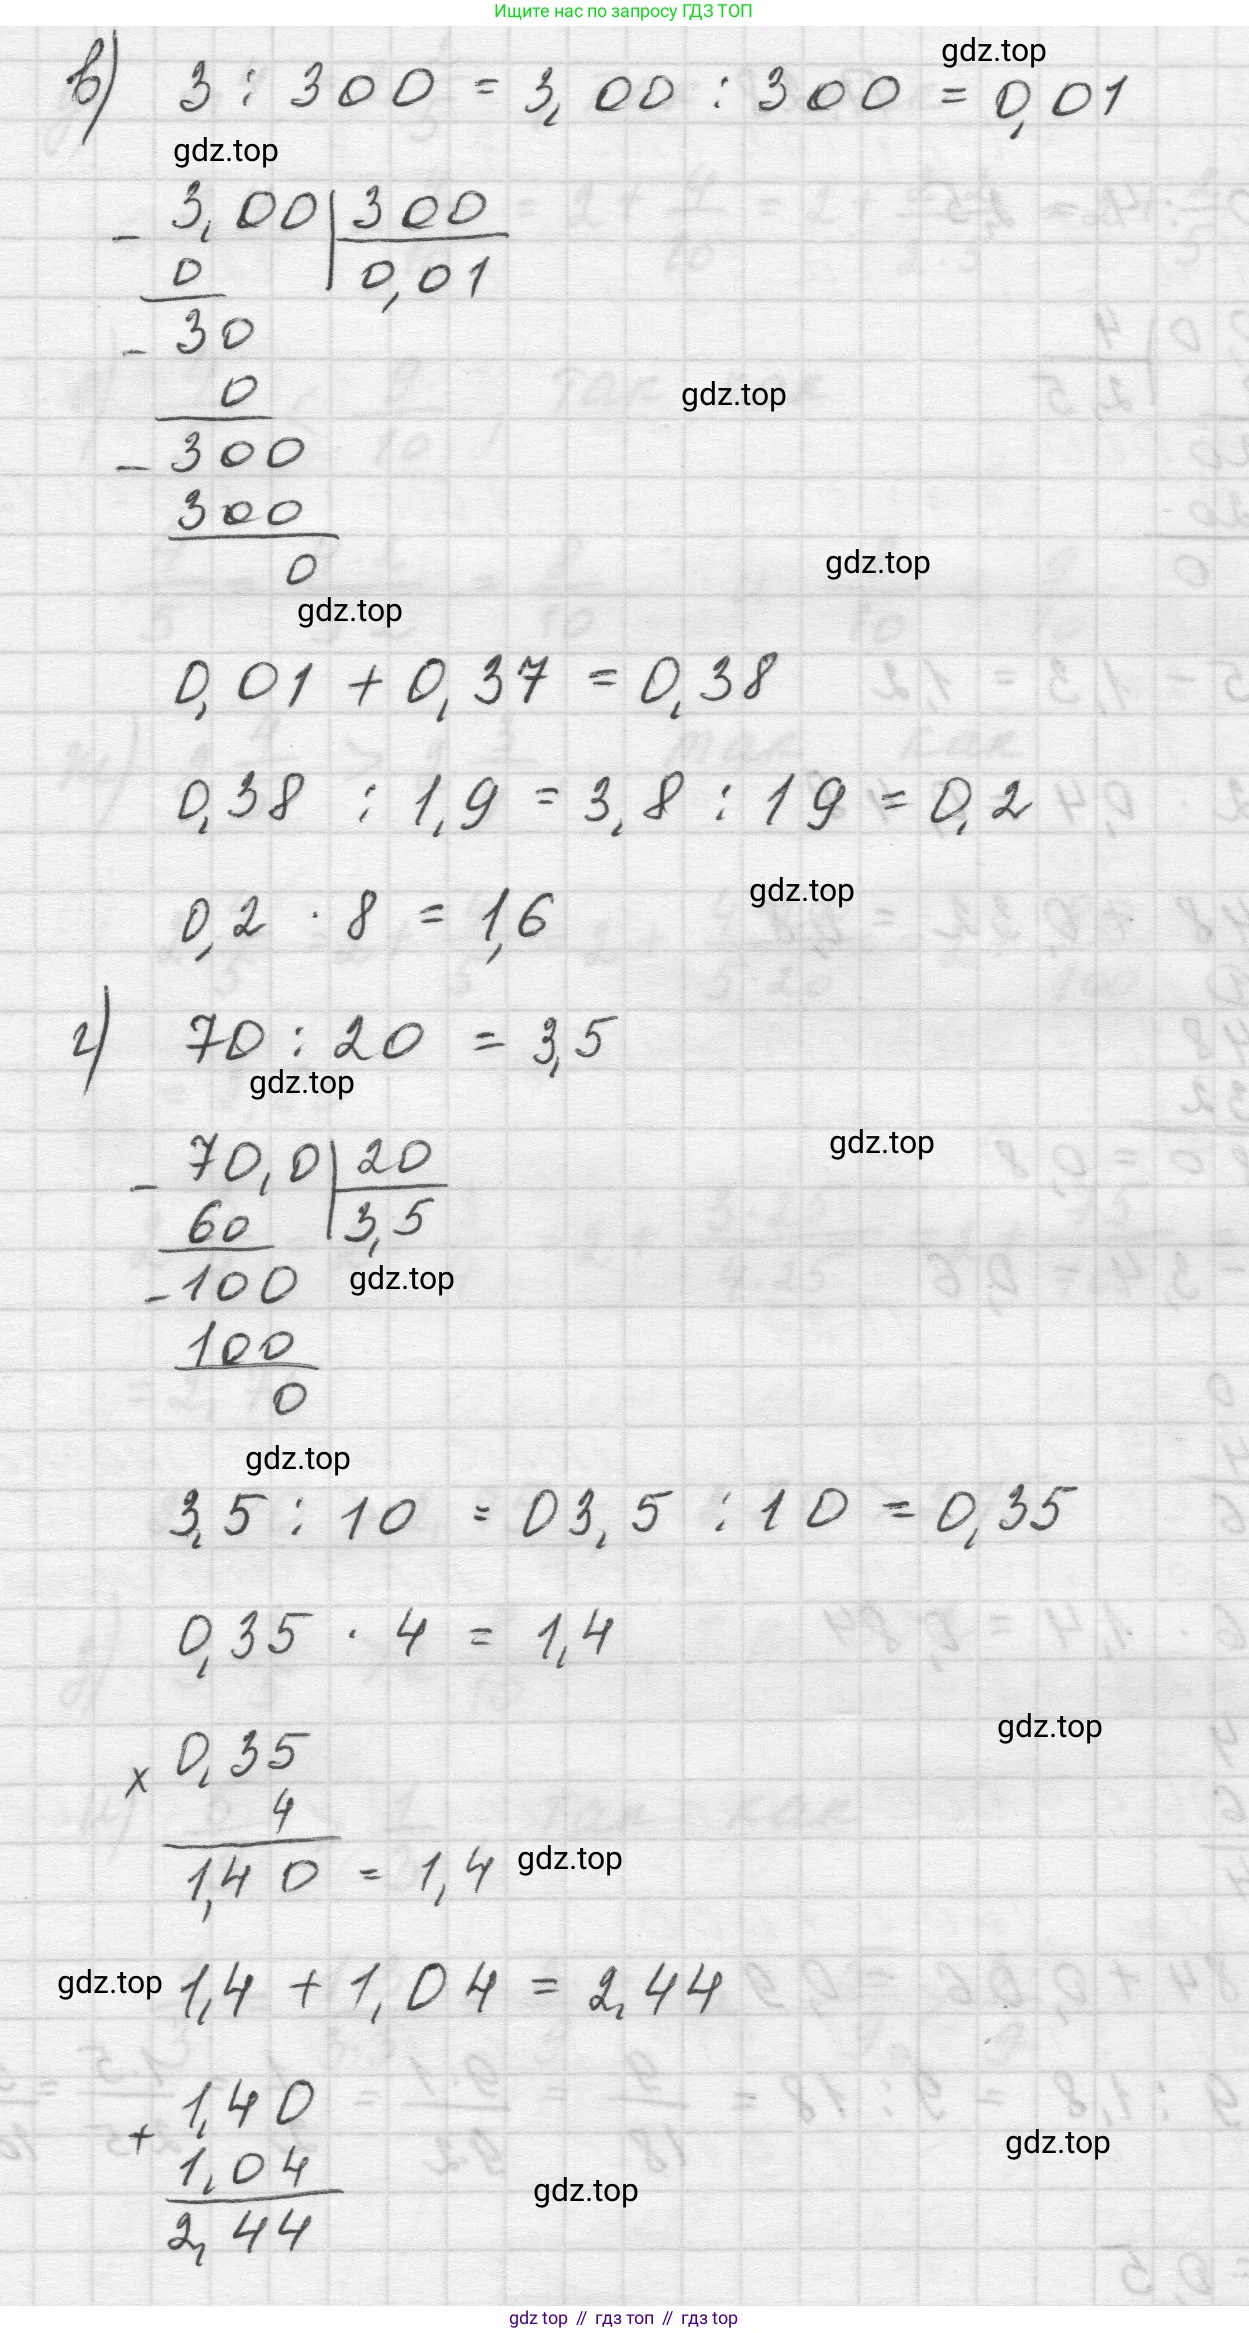 Ищите нас по запросу ГДЗ ТОП
gdz.top
в) 3 : 300 = 3,00 : 300 = 0,01
gdz.top
- 3,00 | 300
0 0,01
- 30
0
gdz.top
- 300
300
0
gdz.top
gdz.top
0,01 + 0,37 = 0,38
0,38 : 1,9 = 3,8 : 19 = 0,2
gdz.top
0,2 · 8 = 1,6
г) 70 : 20 = 3,5
gdz.top
gdz.top
- 70,0 | 20
60 3,5
- 100
gdz.top
100
0
gdz.top
3,5 : 10 = 03,5 : 10 = 0,35
0,35 · 4 = 1,4
gdz.top
x 0,35
4
1,40 = 1,4
gdz.top
gdz.top
1,4 + 1,04 = 2,44
+ 1,40
1,04
gdz.top
gdz.top
2,44
gdz top // гдз топ // гдз top